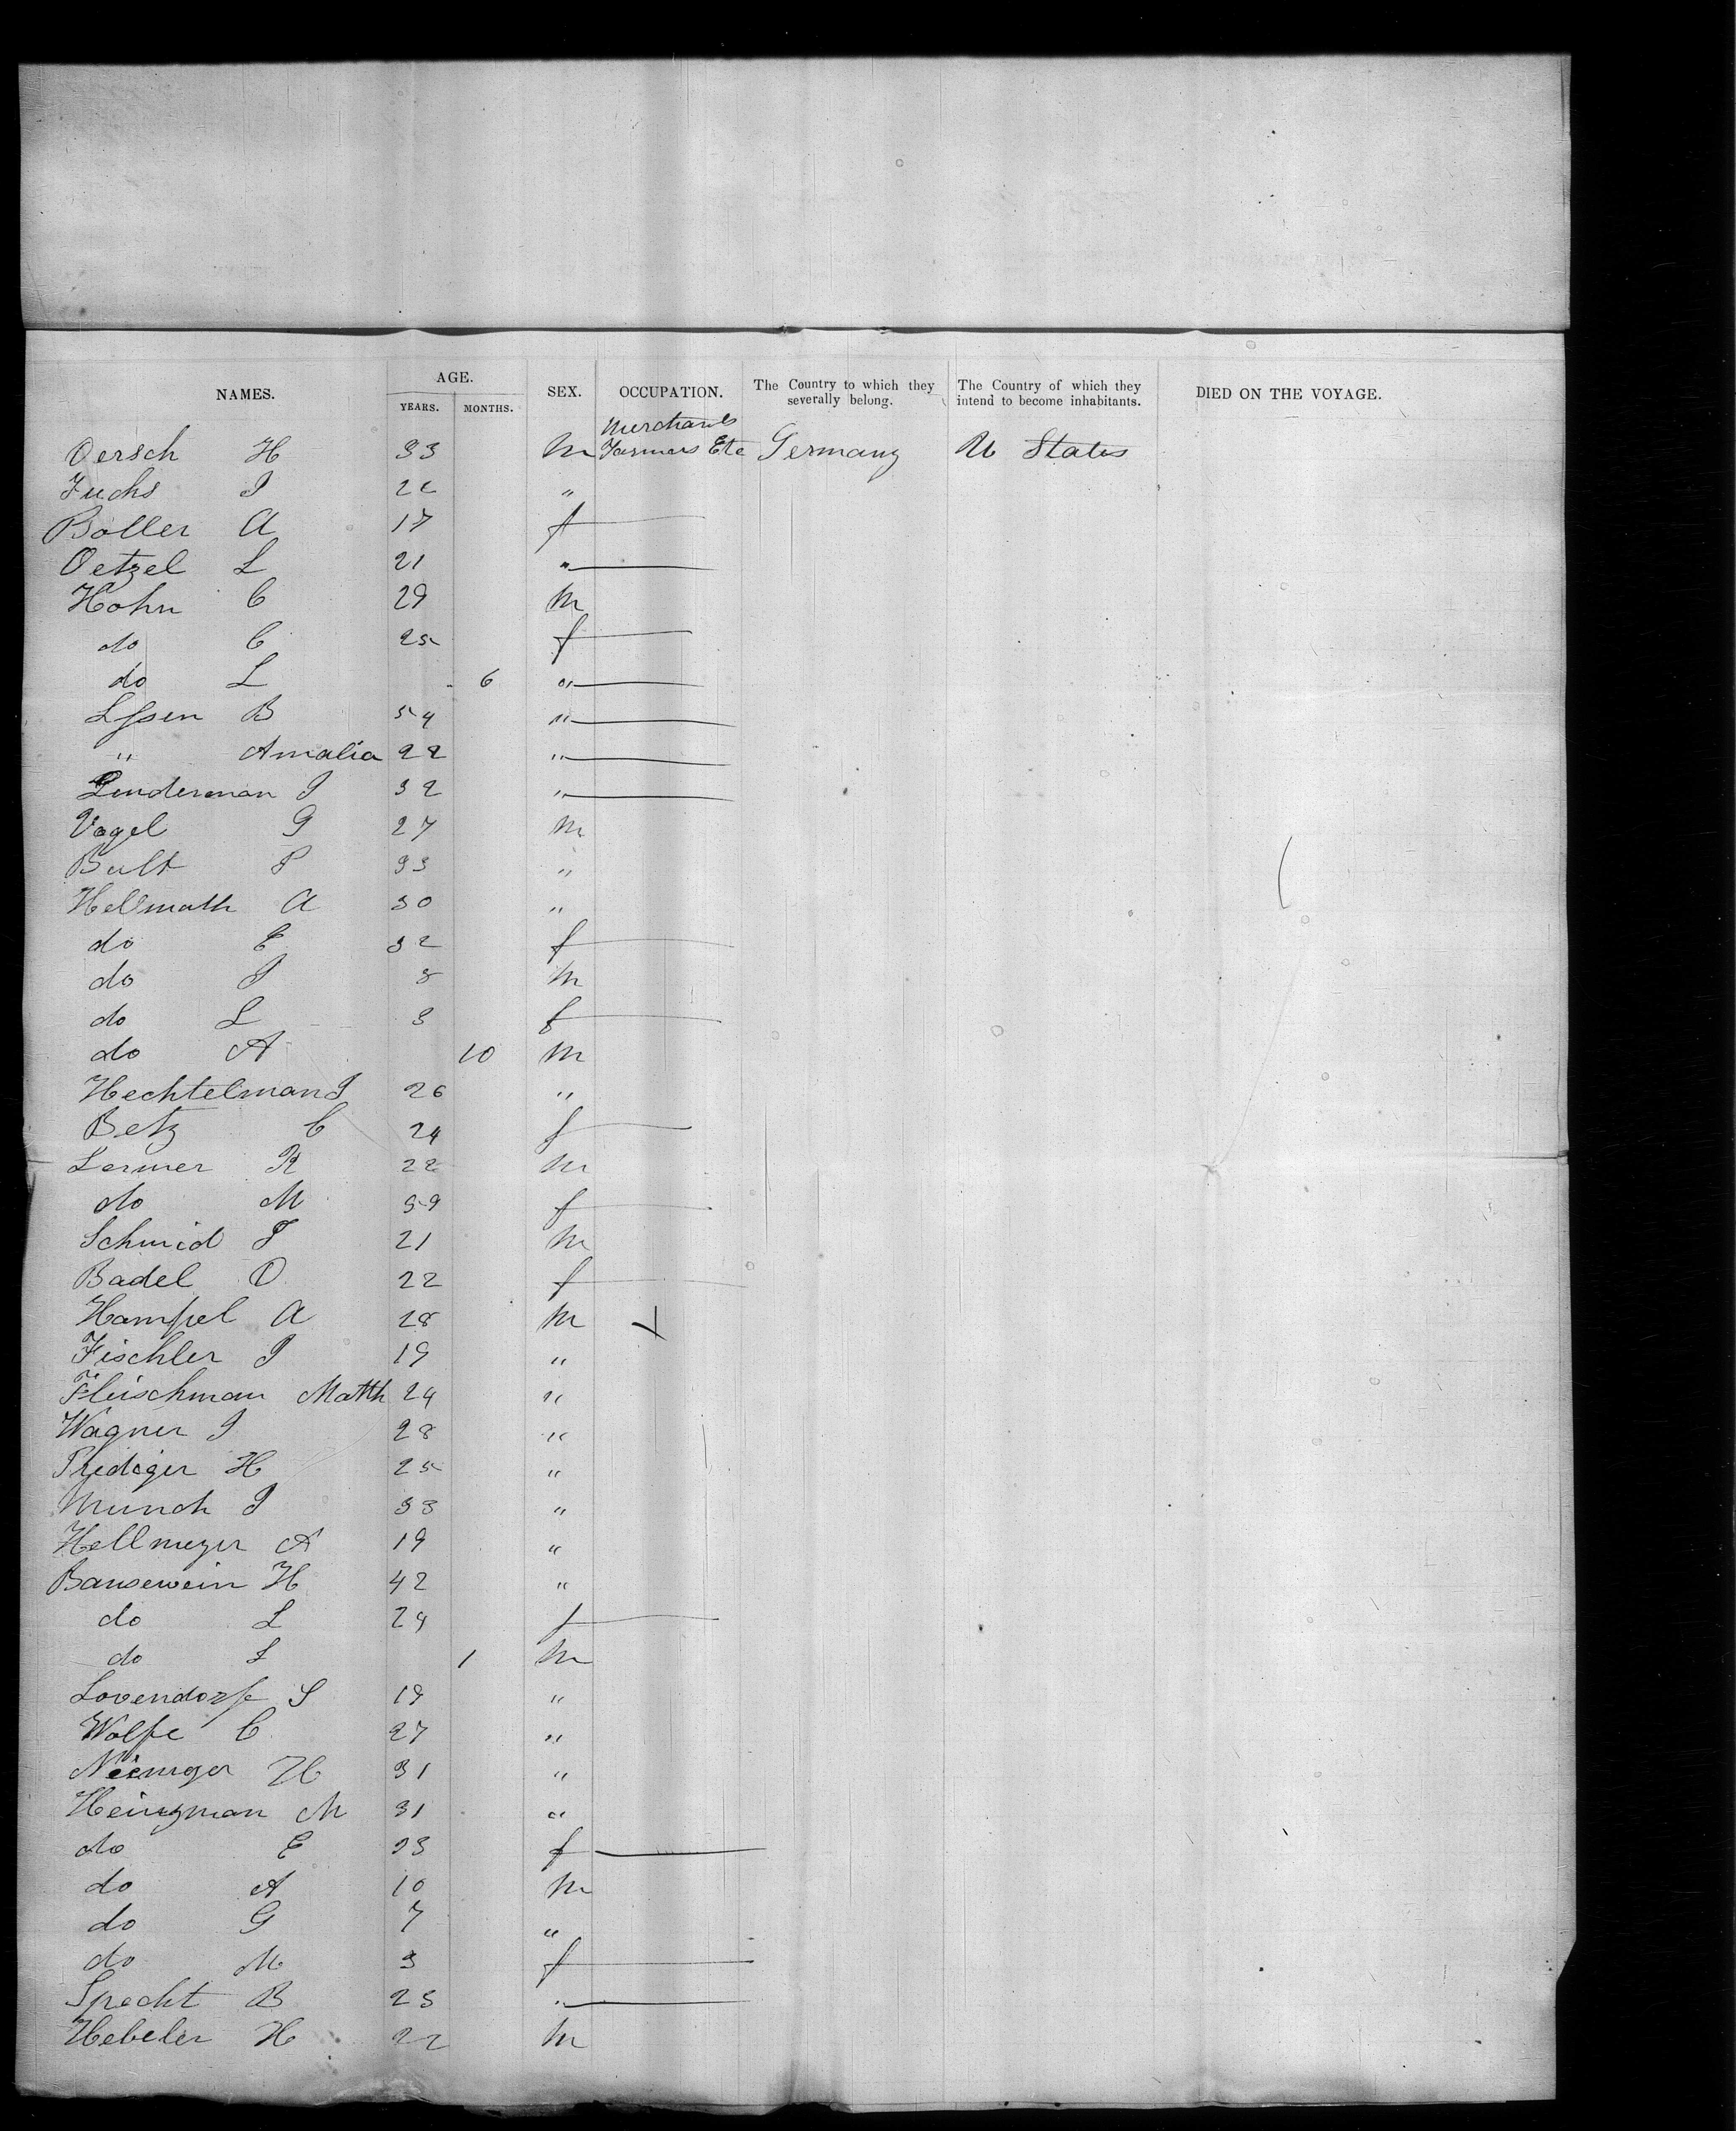 NAMES. AGE. SEX. OCCUPATION. The Country to which they severally belong. The Country of which they intend to become inhabitants. DIED ON THE VOYAGE.
YEARS. MONTHS.
Merchants
Oersch H 33 m Farmers Etc Germany U States
Fuchs J 22 "
Boller A 17 f
Oetzel L 21 "
Hohn C 29 m
do C 25 f
do L 6 "
B 54 "
" Amalia 22 "
Linderman J 32 "
Vogel G 27 m
Bult P 33 "
Hellmuth A 30 "
do E 32 f
do J 8 m
do L 3 f
do A 10 m
Hechtelman J 26 "
Betz C 24 f
Lermer R 22 m
do M 59 f
Schmid F 21 m
Badel O 22 f
Hampel A 28 m
Fischler J 19 "
Fleischman Matth 24 "
Wagner J 28 "
Prediger H 25 "
Munch J 33 "
Hellmeyer A 19 "
Bausewein H 42 "
do L 24 f
do L 1 m
Lovendorfe S 19 "
Wolfe C 27 "
H 31 "
Heinzman M 31 "
do E 23 f
do A 10 m
do G 7 "
do M 3 f
Specht B 23 "
Hebeler H 22 m